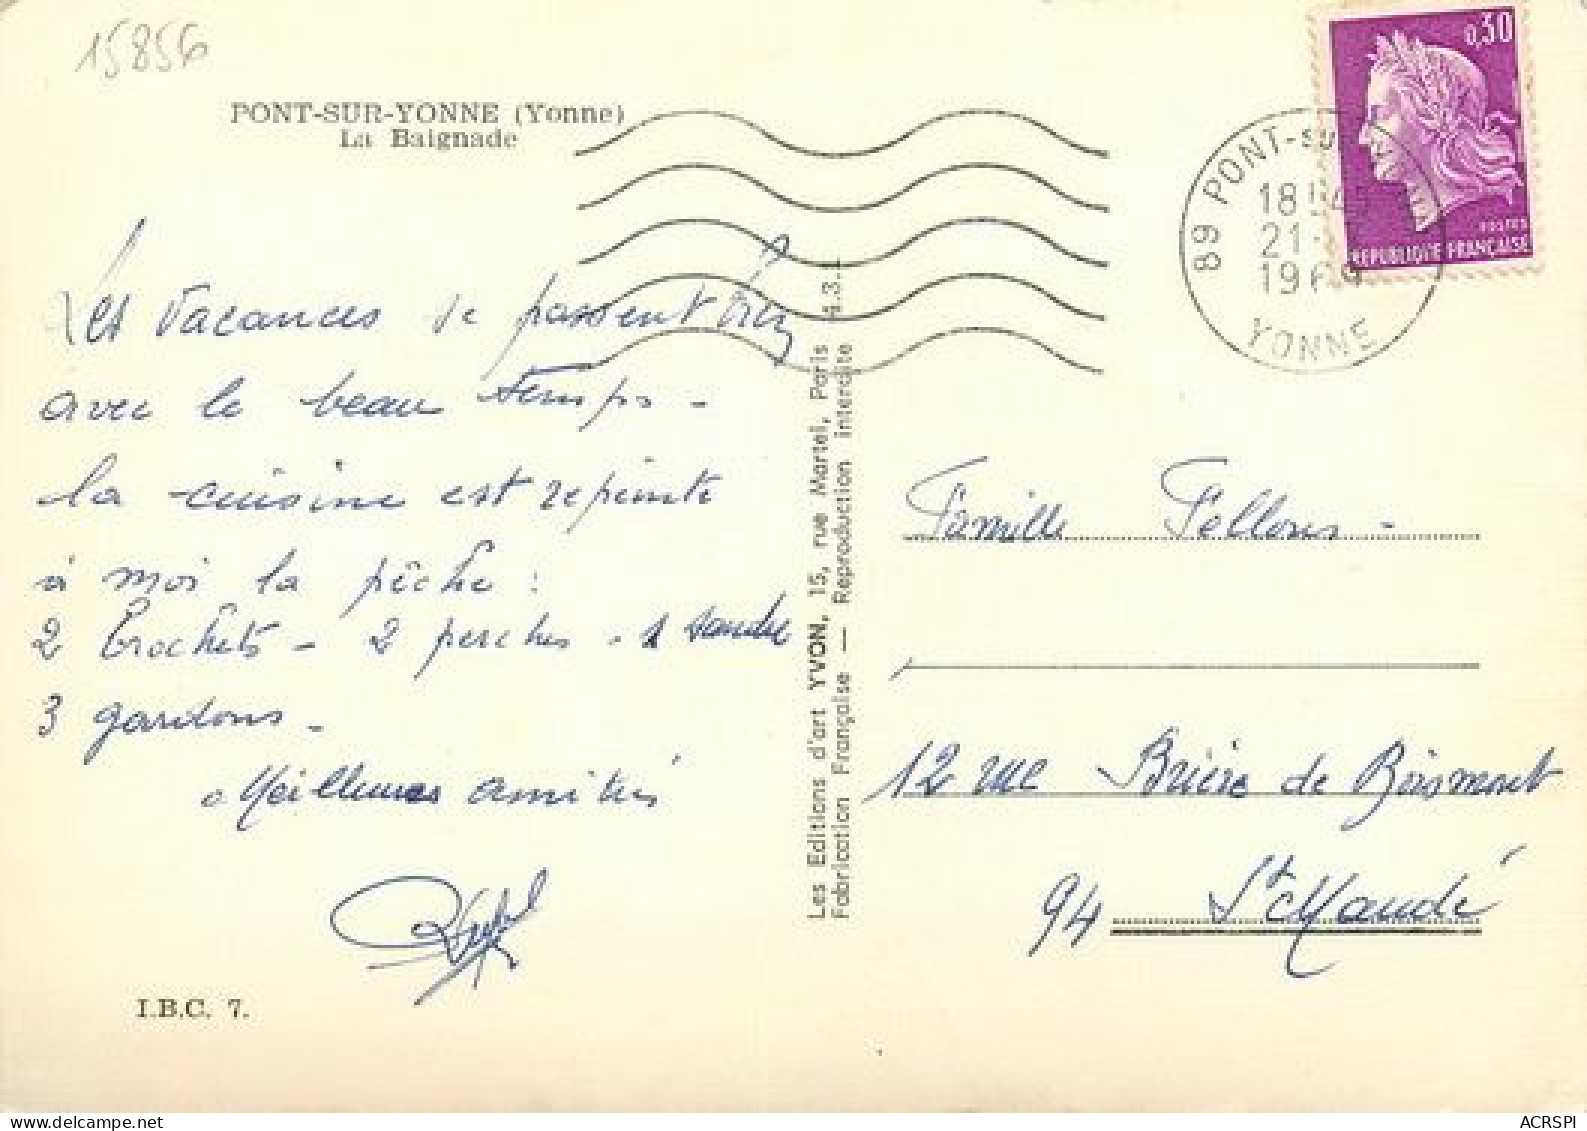 15856
PONT-SUR-YONNE (Yonne)
La Baignade
Les vacances se passent très
avec le beau temps -
la cuisine est repeinte
à moi la pêche :
2 brochets - 2 perches - 1 sandre
3 gardons -
Meilleures amitiés
I.B.C. 7.
Les Editions d'art YVON, 15, rue Martel, Paris 4.3.
Fabrication Française — Reproduction interdite
0,30
POSTES
REPUBLIQUE FRANÇAISE
89 PONT-SUR-YONNE
18 H45
21 -
1969
YONNE
Famille Fellous -
12 rue Brière de Boismont
94 St Mandé
ACRSPI